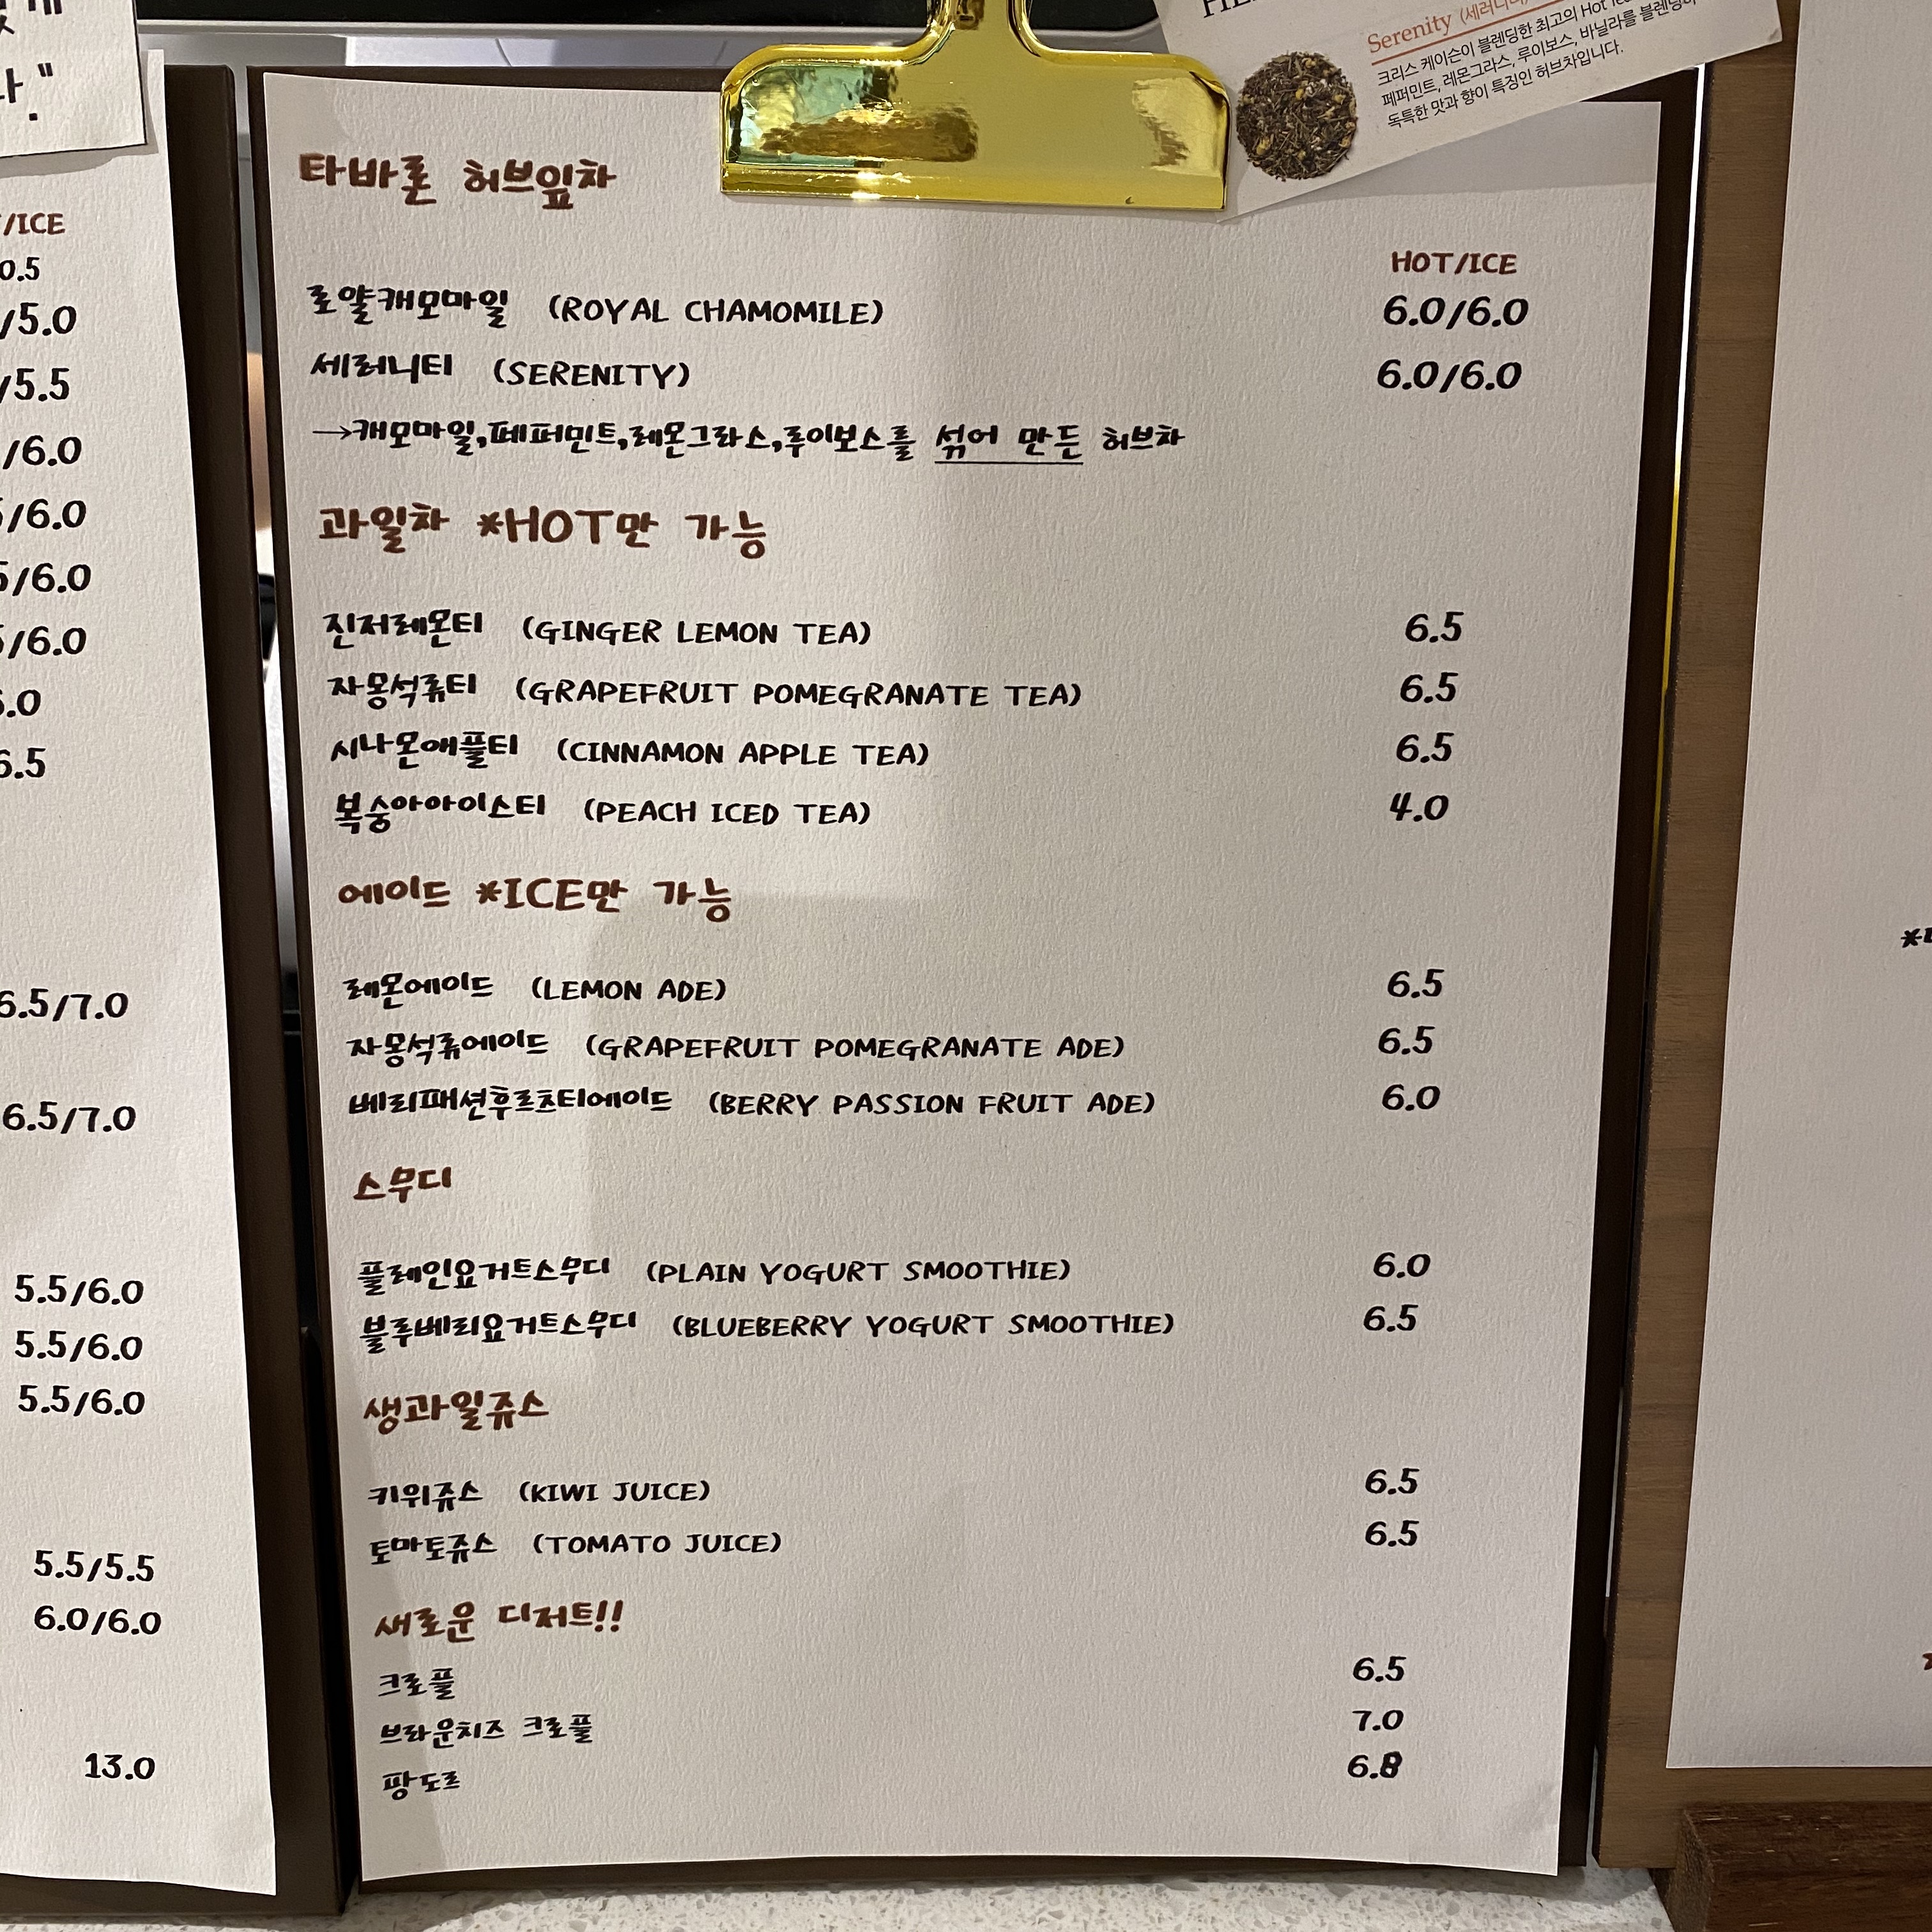 다."
/ICE
0.5
/5.0
/5.5
/6.0
/6.0
/6.0
/6.0
6.5/7.0
6.5/7.0
5.5/6.0
5.5/6.0
5.5/6.0
5.5/5.5
6.0/6.0
13.0
타바론 허브잎차
HOT/ICE
로얄캐모마일 (ROYAL CHAMOMILE) 6.0/6.0
세러니티 (SERENITY) 6.0/6.0
→캐모마일,페퍼민트,레몬그라스,루이보스를 섞어 만든 허브차
과일차 *HOT만 가능
진저레몬티 (GINGER LEMON TEA) 6.5
자몽석류티 (GRAPEFRUIT POMEGRANATE TEA) 6.5
시나몬애플티 (CINNAMON APPLE TEA) 6.5
복숭아아이스티 (PEACH ICED TEA) 4.0
에이드 *ICE만 가능
레몬에이드 (LEMON ADE) 6.5
자몽석류에이드 (GRAPEFRUIT POMEGRANATE ADE) 6.5
베리패션후르츠티에이드 (BERRY PASSION FRUIT ADE) 6.0
스무디
플레인요거트스무디 (PLAIN YOGURT SMOOTHIE) 6.0
블루베리요거트스무디 (BLUEBERRY YOGURT SMOOTHIE) 6.5
생과일쥬스
키위쥬스 (KIWI JUICE) 6.5
토마토쥬스 (TOMATO JUICE) 6.5
새로운 디저트!!
크로플 6.5
브라운치즈 크로플 7.0
팡도르 6.8
Serenity (세러니티)
크리스 케이슨이 블렌딩한 최고의 Hot
페퍼민트, 레몬그라스, 루이보스, 바닐라를
독특한 맛과 향이 특징인 허브차입니다.